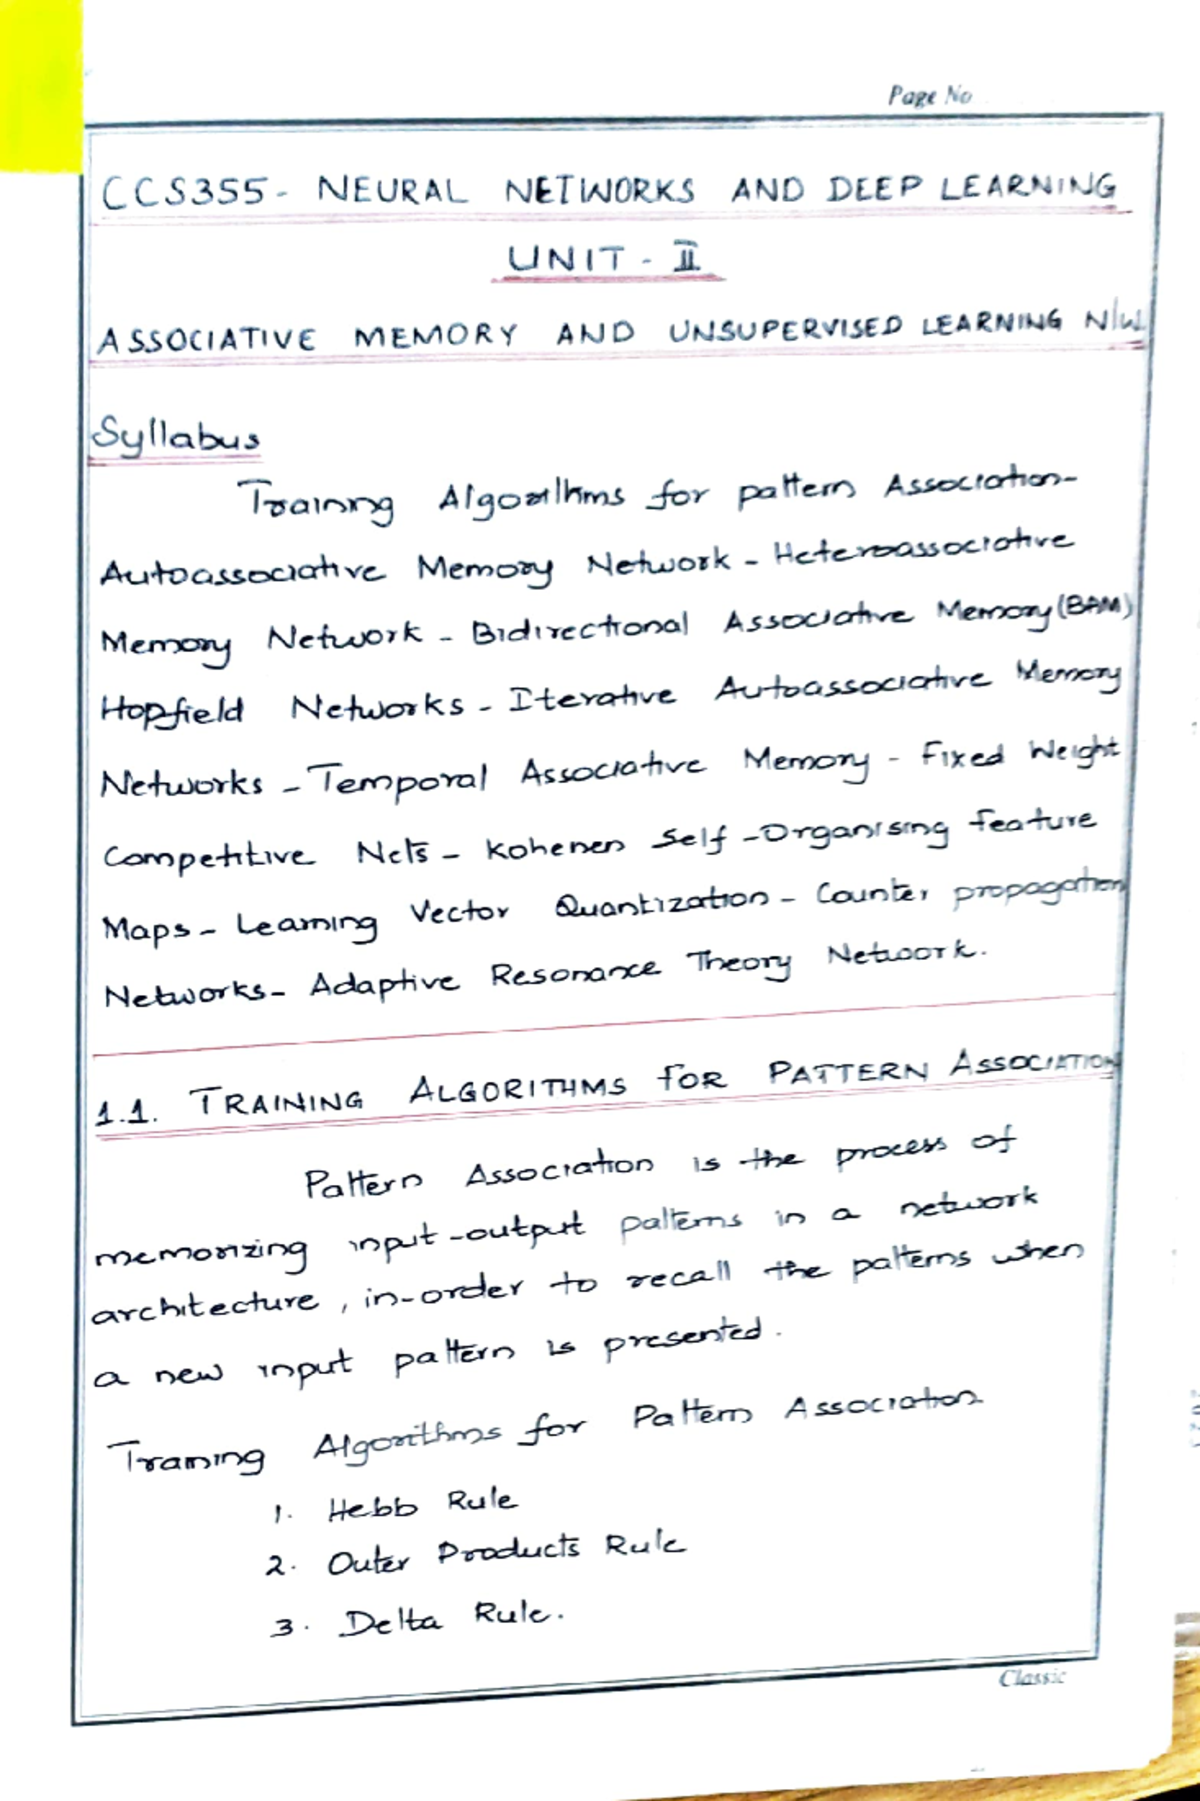 Page No
CCS355- NEURAL NETWORKS AND DEEP LEARNING
UNIT - II
ASSOCIATIVE MEMORY AND UNSUPERVISED LEARNING N/W
Syllabus
Training Algorithms for pattern Association-
Autoassociative Memory Network - Heteroassociative
Memory Network - Bidirectional Associative Memory (BAM)
Hopfield Networks - Iterative Autoassociative Memory
Networks - Temporal Associative Memory - Fixed Weight
Competitive Nets - Kohenen Self -Organising feature
Maps - Learning Vector Quantization - Counter propagation
Networks- Adaptive Resonance Theory Network.
1.1. TRAINING ALGORITHMS FOR PATTERN ASSOCIATION
Pattern Association is the process of
memorizing input -output patterns in a network
architecture, in-order to recall the patterns when
a new input pattern is presented.
Training Algorithms for Pattern Association
1. Hebb Rule
2. Outer Products Rule
3. Delta Rule.
Classic